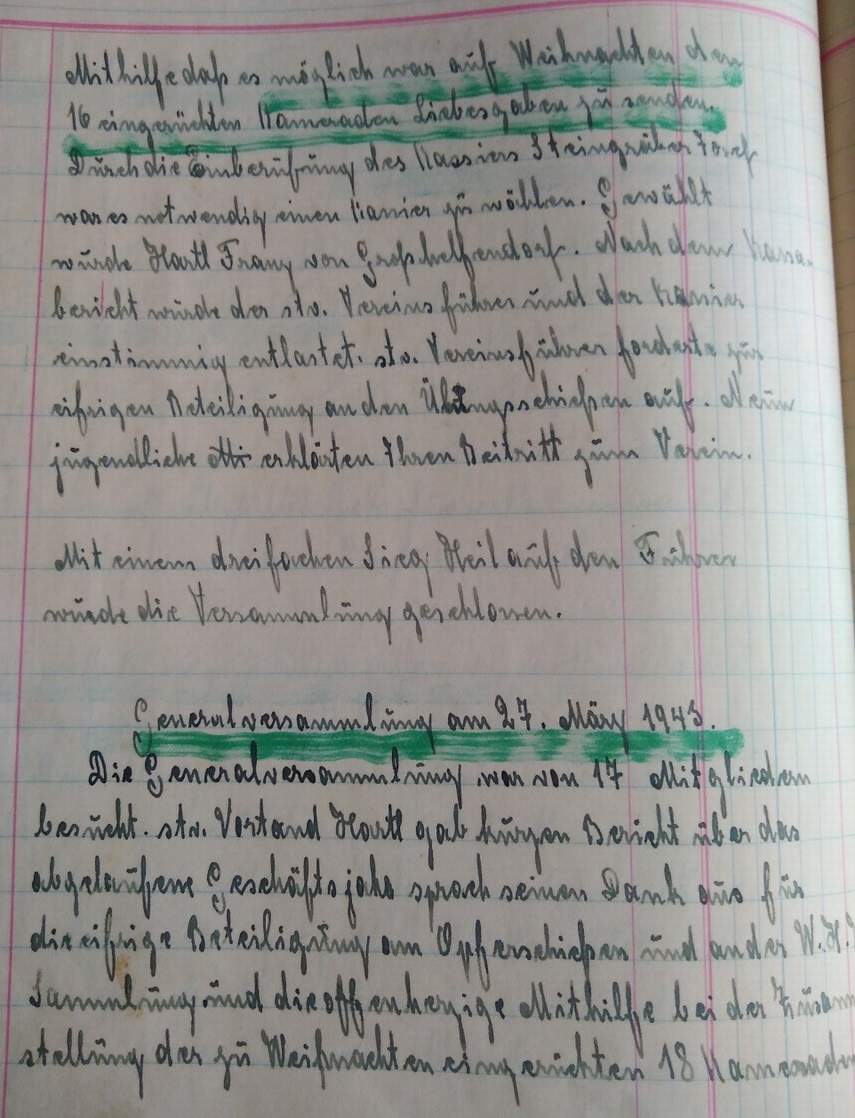 Mithilfe daß es möglich war auf Weihnachten den
16 eingerückten Kameraden Liebesgaben zu senden.
Durch die Einberufung des Kassiers Steingräber Josef
war es notwendig einen Kassier zu wählen. Gewählt
wurde Hartl Franz von Großhelfendorf. Nach dem Kassa-
bericht wurde der stv. Vereinsführer und der Kassier
einstimmig entlastet. stv. Vereinsführer forderte zur
eifrigen Beteiligung an den Übungsschießen auf. Neun
jugendliche erklärten Ihren Beitritt zum Verein.
Mit einem dreifachen Sieg Heil auf den Führer
wurde die Versammlung geschlossen.
Generalversammlung am 27. März 1943.
Die Generalversammlung war von 17 Mitgliedern
besucht. stv. Vorstand Hartl gab kurzen Bericht über das
abgelaufene Geschäftsjahr sprach seinen Dank aus für
die eifrige Beteiligung am Opferschießen und an der W.H.
Sammlung und die offenherzige Mithilfe bei der Zusam
stellung der zu Weihnachten eingerückten 18 Kamerad